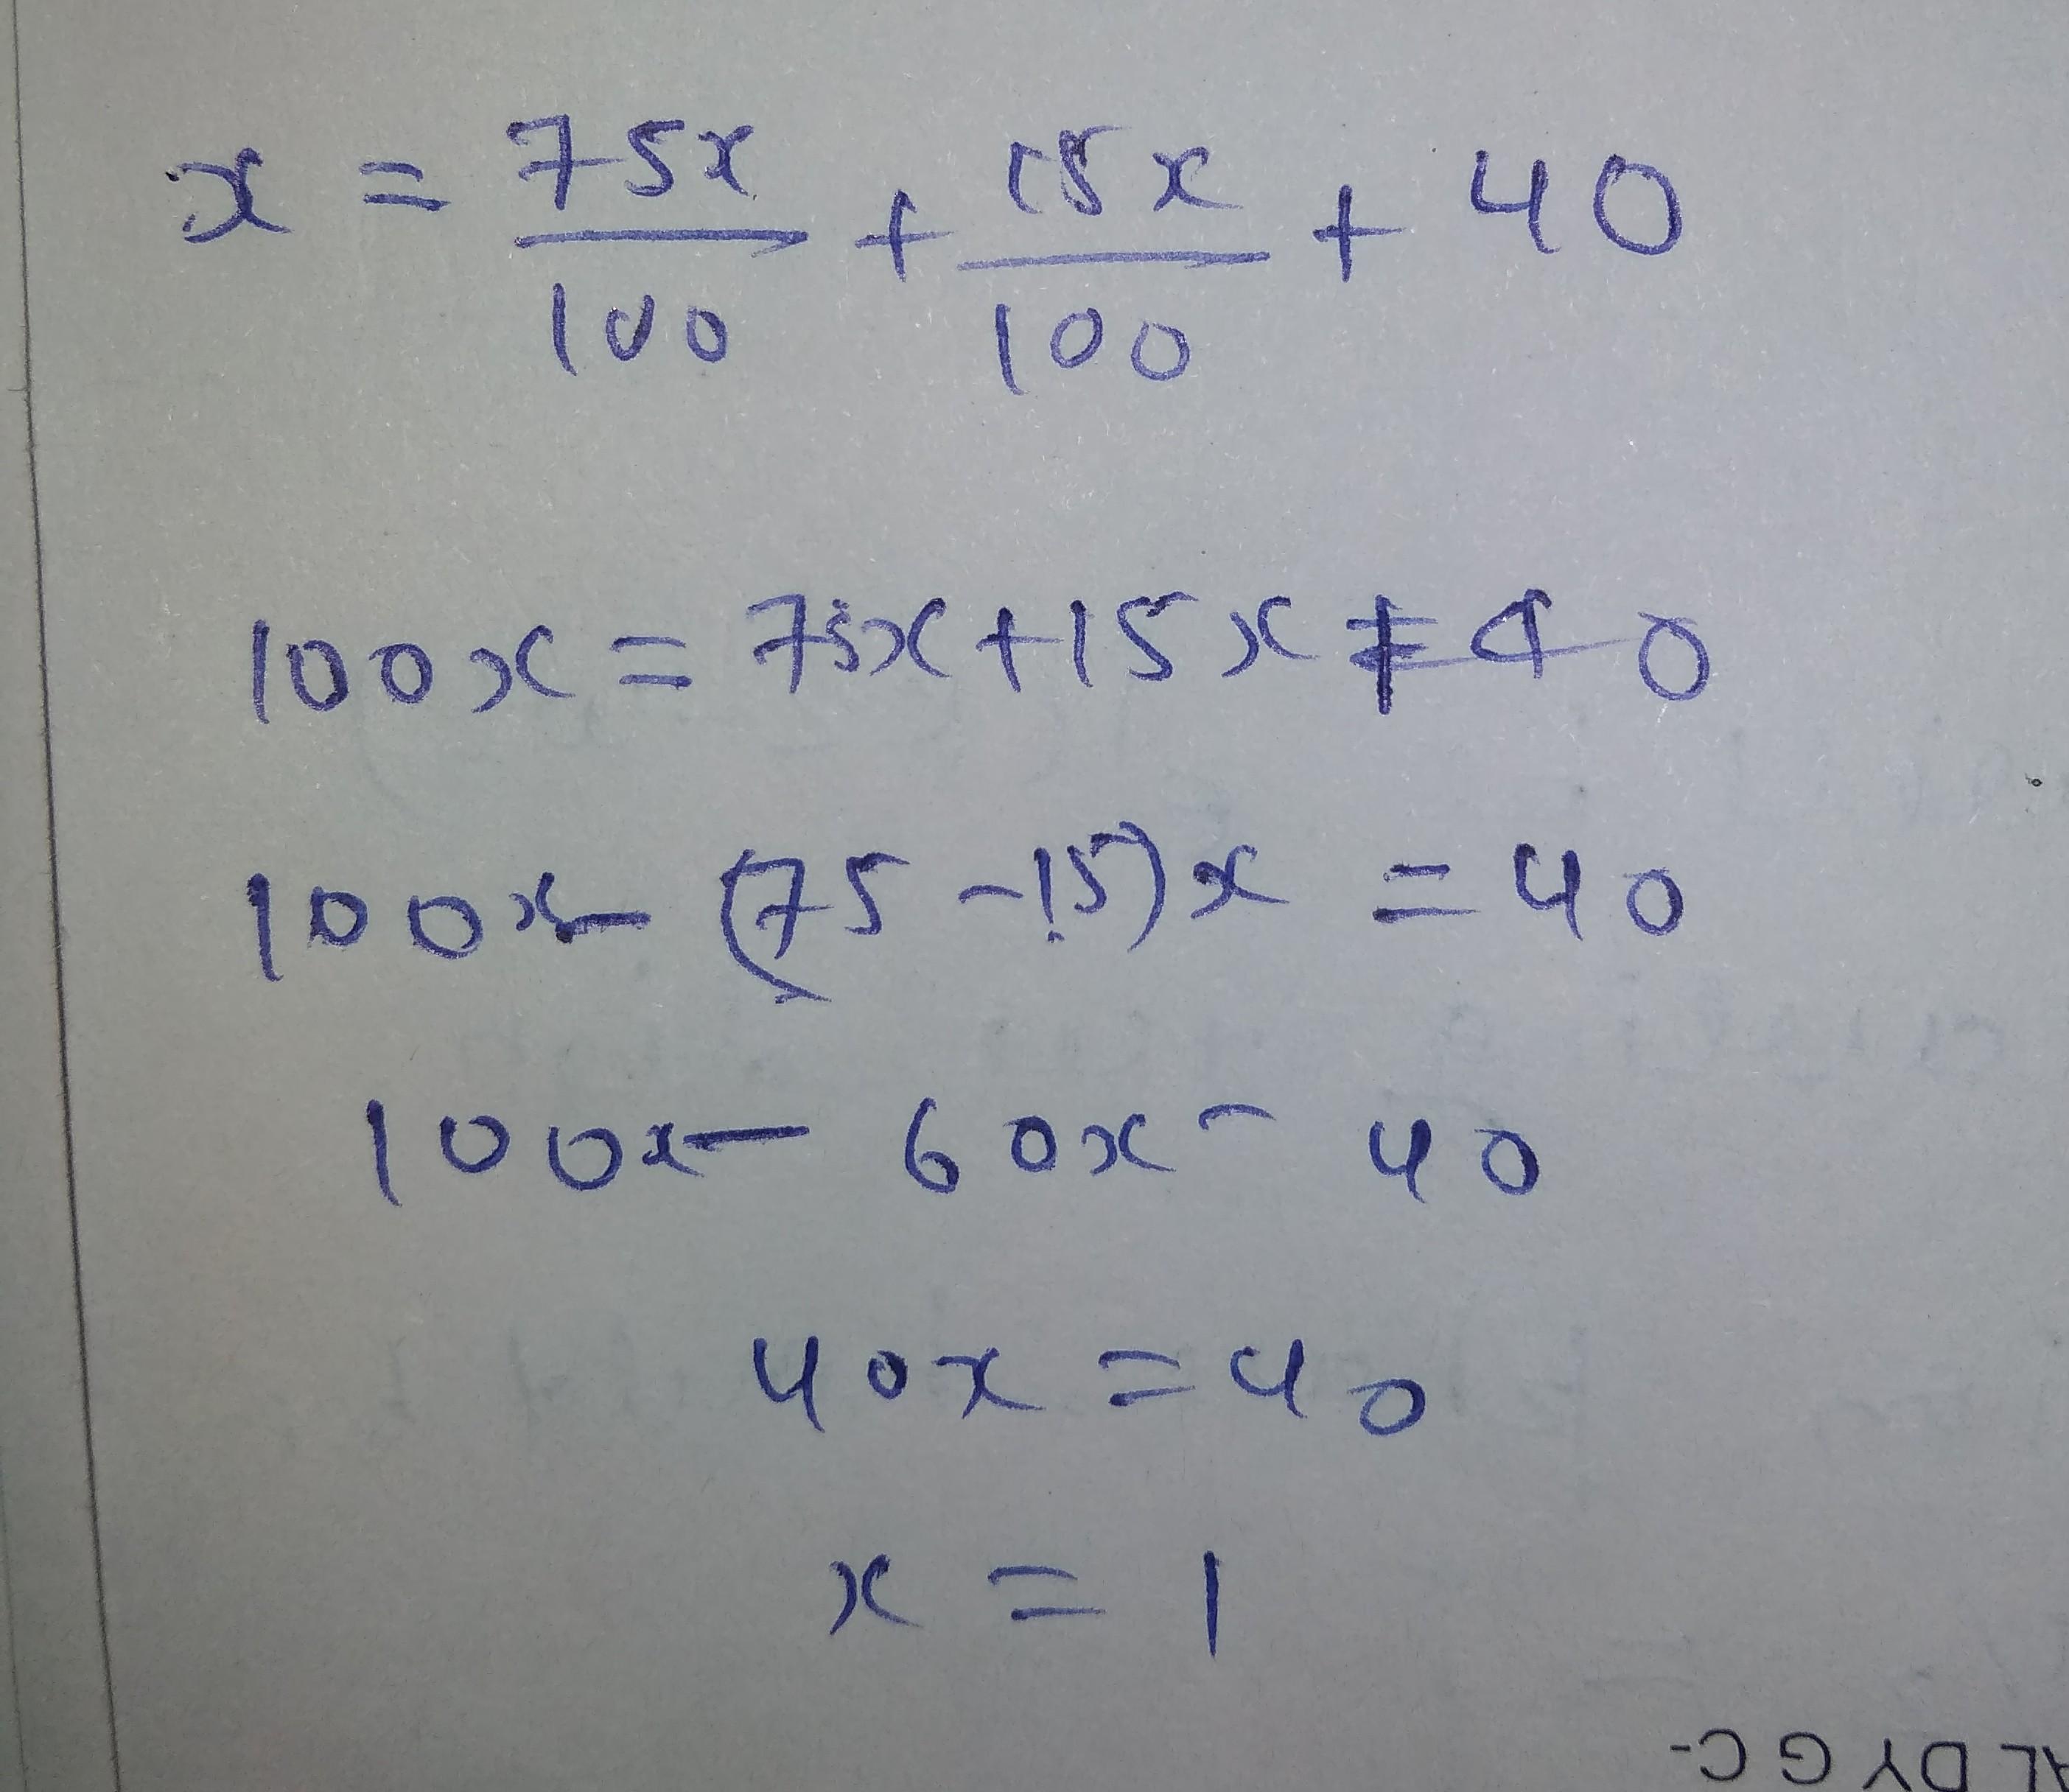 x = 75x/100 + 15x/100 + 40
100x = 75x + 15x + 40
100x - (75 - 15)x = 40
100x - 60x = 40
40x = 40
x = 1
AL DY G C-